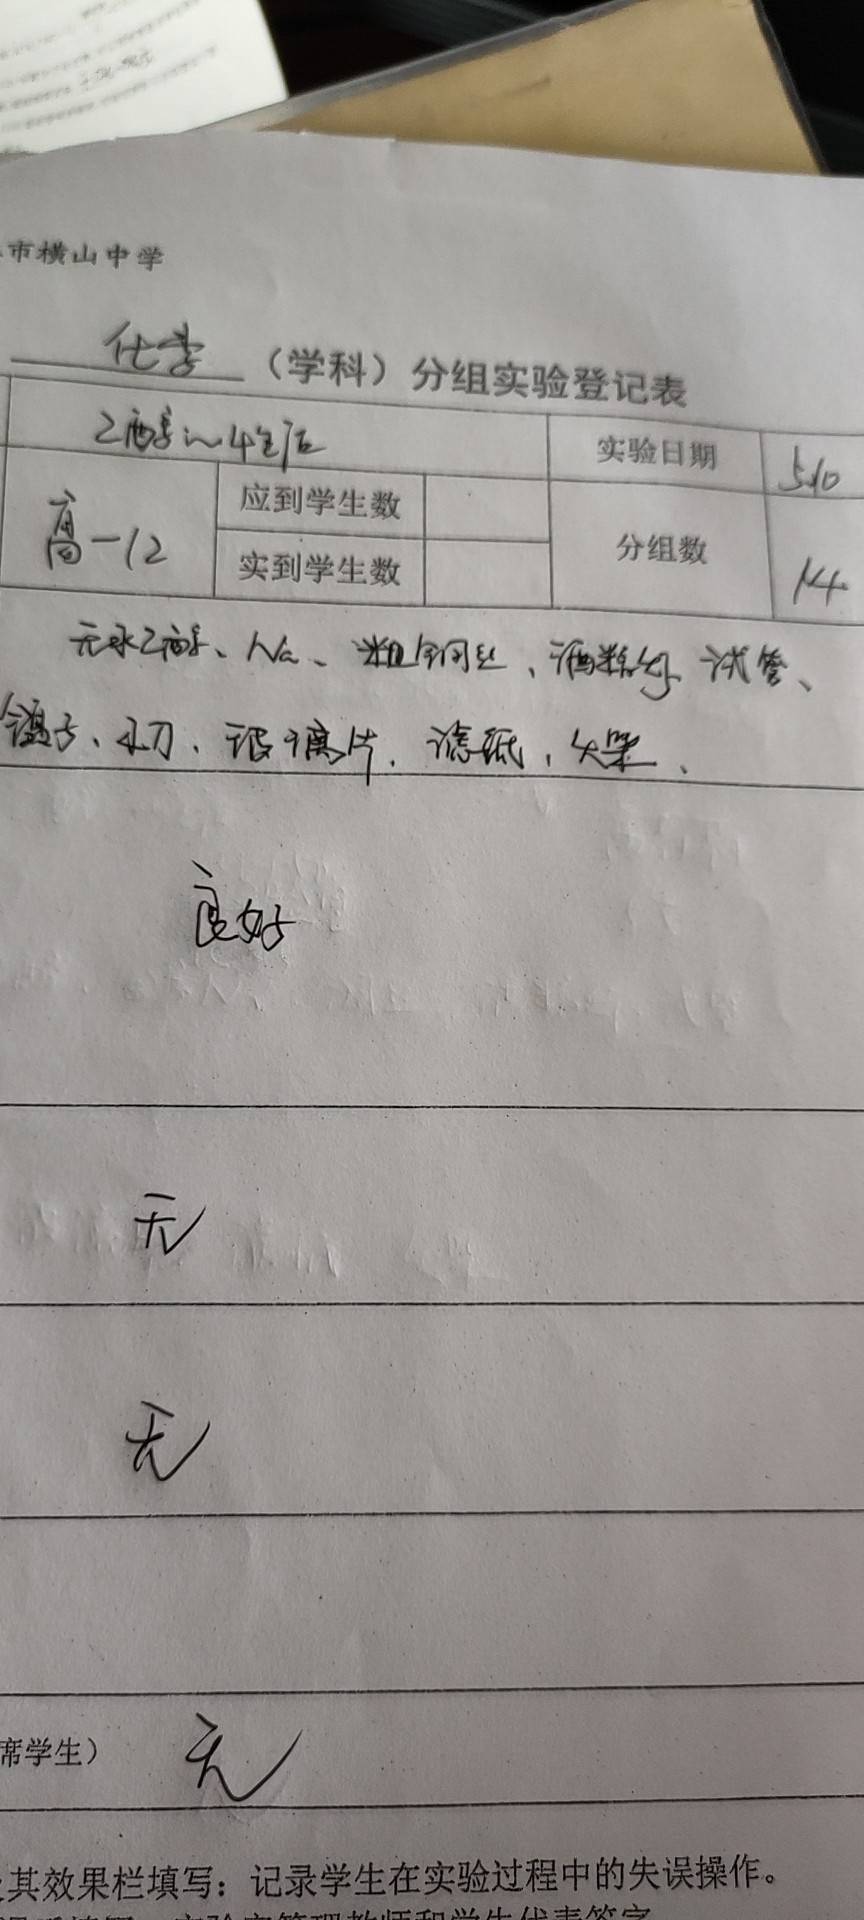 市横山中学
化学（学科）分组实验登记表
乙醇的性质 实验日期 5.10
高一12 应到学生数 分组数 14
实到学生数
无水乙醇、Na、粗铜丝、酒精灯 试管、
镊子、小刀、玻璃片、滤纸、火柴、
良好
无
无
席学生） 无
其效果栏填写：记录学生在实验过程中的失误操作。